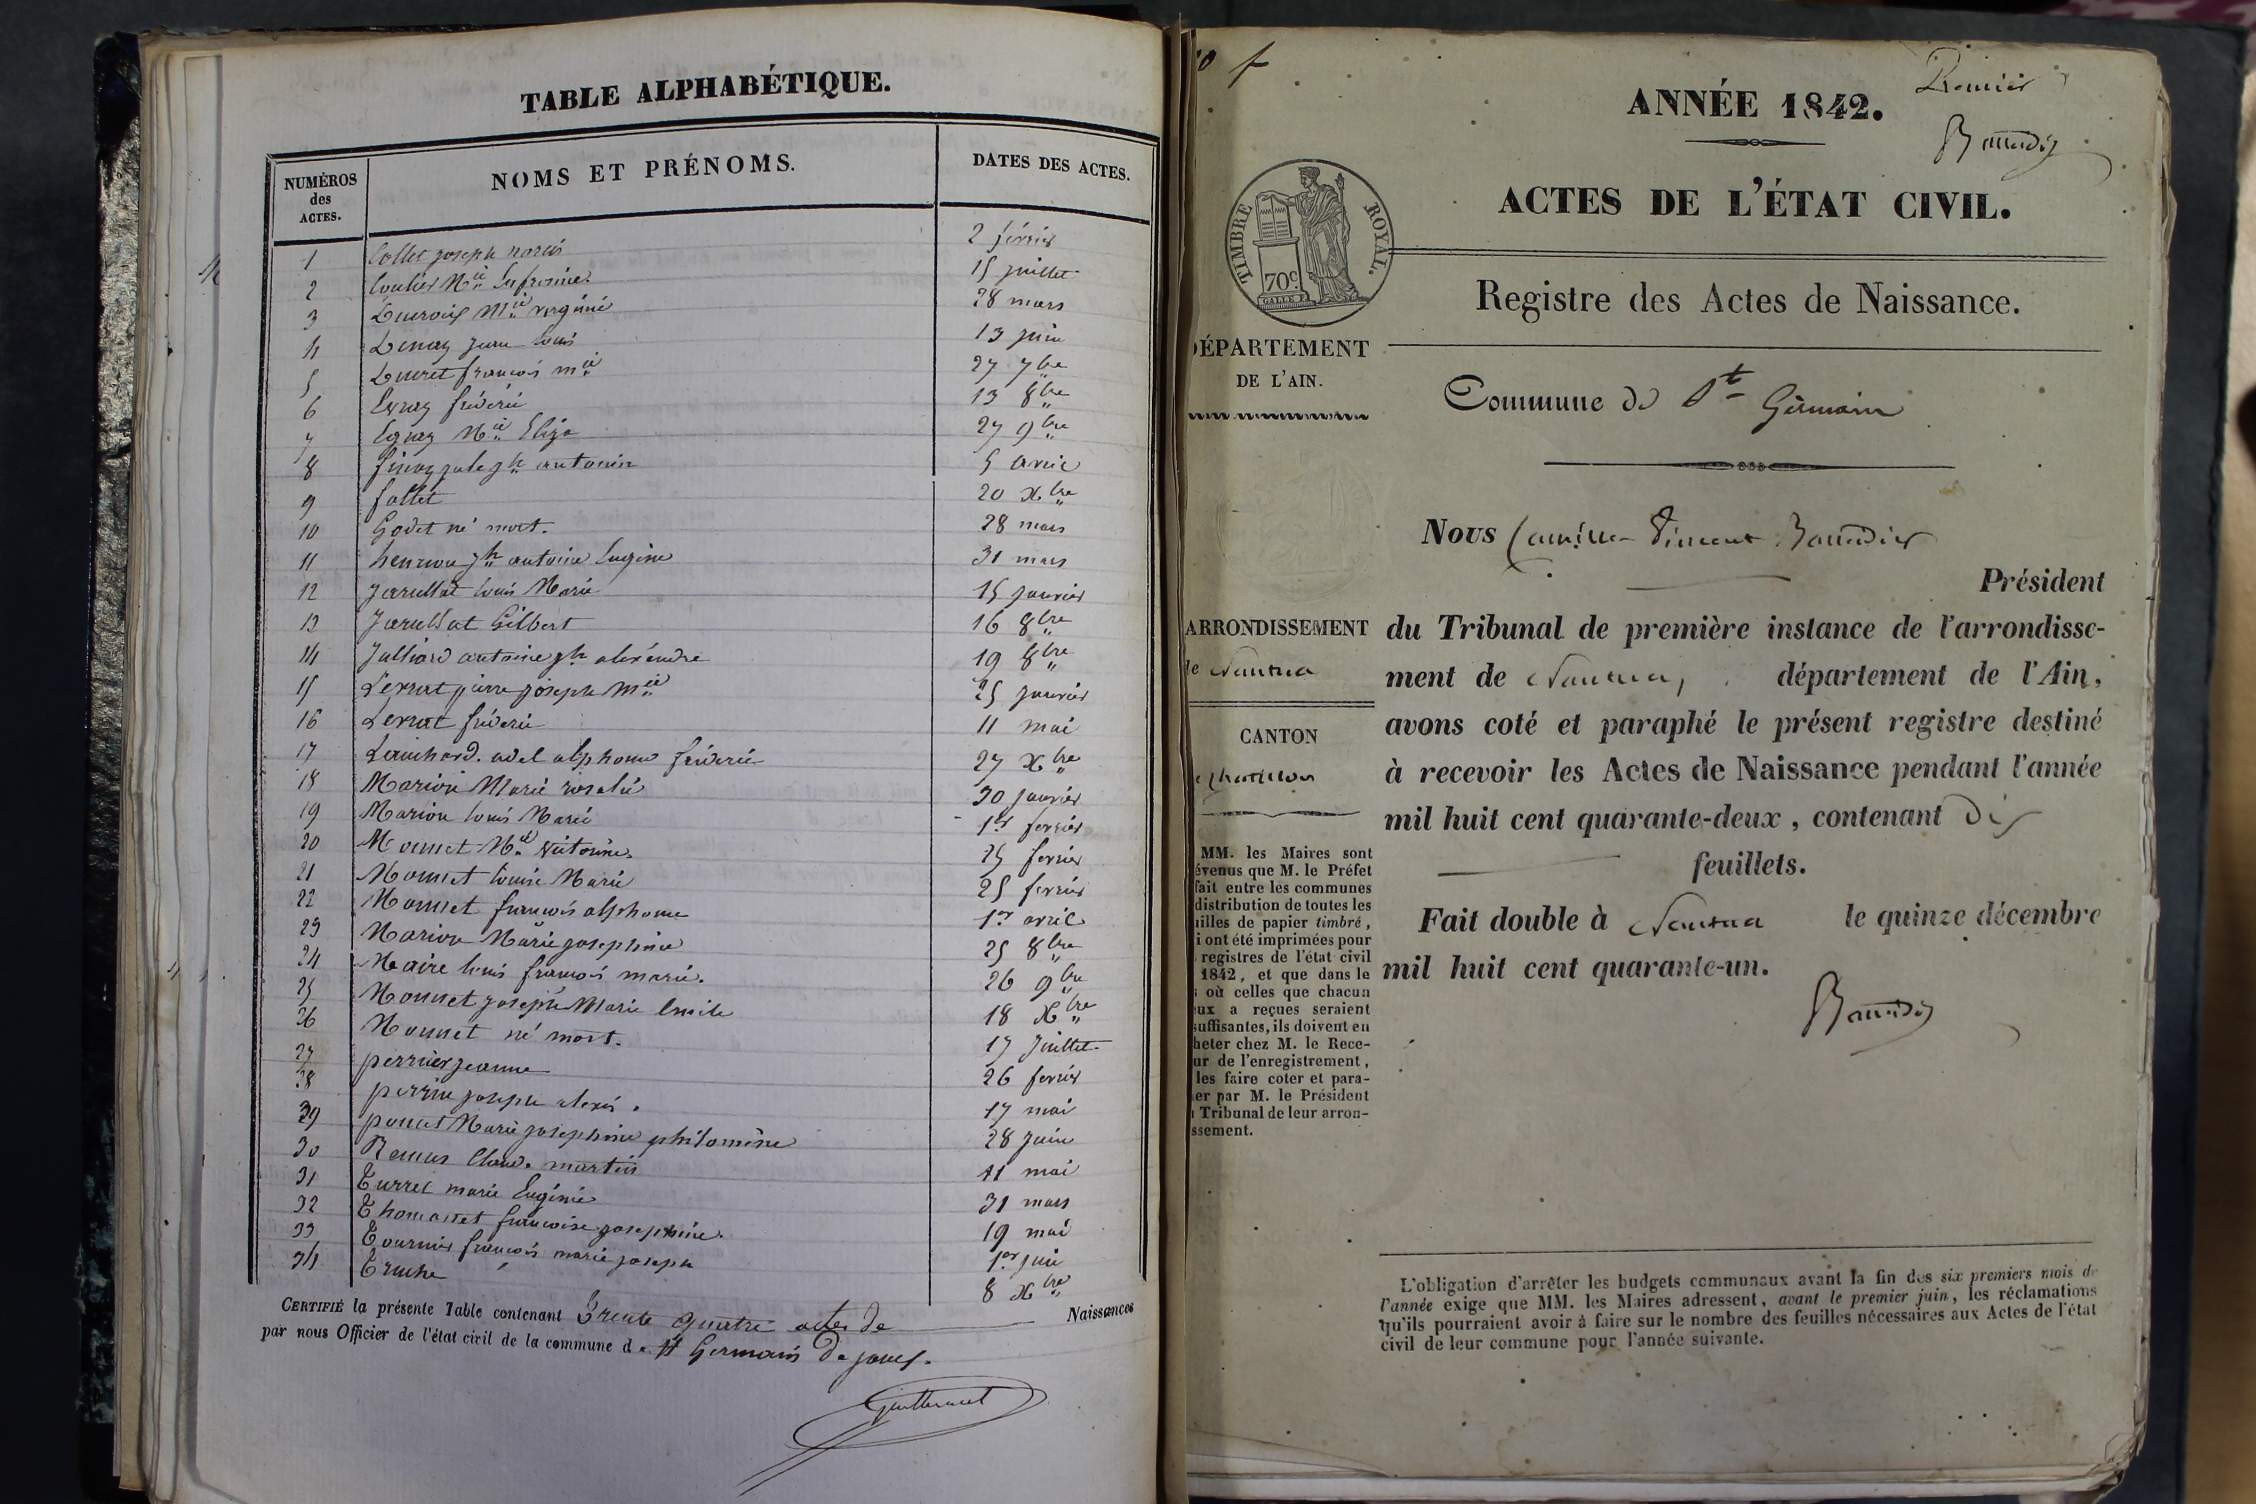 TABLE ALPHABÉTIQUE.
NUMÉROS des ACTES. NOMS ET PRÉNOMS. DATES DES ACTES.
1 Collet joseph 2 février
2 Mie 15 juillet
3 Mie virginie 28 mars
4 jean louis 13 juin
5 Ducret françois mie 27 7bre
6 fréderic 13 8bre
7 Mie Eliza 27 9bre
8 antonin 5 avril
9 follet 20 Xbre
10 Godet né mort. 28 mars
11 henriou jh antoine Eugène 31 mars
12 Jarullat louis Marie 15 janvier
13 Jarullat Gilbert 16 8bre
14 Julliard antoine jh alexendre 19 8bre
15 Levrat pierre joseph Mie 25 janvier
16 Levrat fréderic 11 mai
17 adel alphonse fréderic 27 Xbre
18 Marion Marie rosalie 30 janvier
19 Marion louis Marie 1er fevrier
20 Monnet Mie 25 fevrier
21 Monnet louise Marie 25 fevrier
22 Monnet françois alphonse 1er avril
23 Marion Marie josephine 25 8bre
24 Maire louis françois marie. 26 9bre
25 Monnet joseph Marie Emile 18 Xbre
26 Monnet né mort. 17 Juillet
27 perrier jeanne 26 fevrier
28 perrin joseph alexis. 17 mai
29 poncet Marie josephine philomène 28 juin
30 Claude martin 11 mai
31 Turrel marie Eugénie 31 mars
32 Thomasset françoise josephine. 19 mai
33 Tournier françois marie joseph 1er juin
34 Truche 8 Xbre
CERTIFIÉ la présente Table contenant Trente quatre actes de Naissances
par nous Officier de l'état civil de la commune de St Germain De joux.
10 f
Premier
Baudier
ANNÉE 1842.
ACTES DE L'ÉTAT CIVIL.
TIMBRE ROYAL.
70c
Registre des Actes de Naissance.
DÉPARTEMENT
DE L'AIN.
Commune de St Germain
Nous Camille Vincent Baudier
Président
du Tribunal de première instance de l'arrondisse-
ment de Nantua, département de l'Ain,
avons coté et paraphé le présent registre destiné
à recevoir les Actes de Naissance pendant l'année
mil huit cent quarante-deux, contenant Dix
feuillets.
Fait double à Nantua le quinze décembre
mil huit cent quarante-un.
Baudier
ARRONDISSEMENT
de Nantua
CANTON
Chatillon
MM. les Maires sont
évenus que M. le Préfet
fait entre les communes
distribution de toutes les
illes de papier timbré,
i ont été imprimées pour
registres de l'état civil
1842, et que dans le
s où celles que chacun
eux a reçues seraient
suffisantes, ils doivent en
heter chez M. le Rece-
ur de l'enregistrement,
les faire coter et para-
er par M. le Président
Tribunal de leur arron-
ssement.
L'obligation d'arrêter les budgets communaux avant la fin des six premiers mois de
l'année exige que MM. les Maires adressent, avant le premier juin, les réclamations
qu'ils pourraient avoir à faire sur le nombre des feuilles nécessaires aux Actes de l'état
civil de leur commune pour l'année suivante.